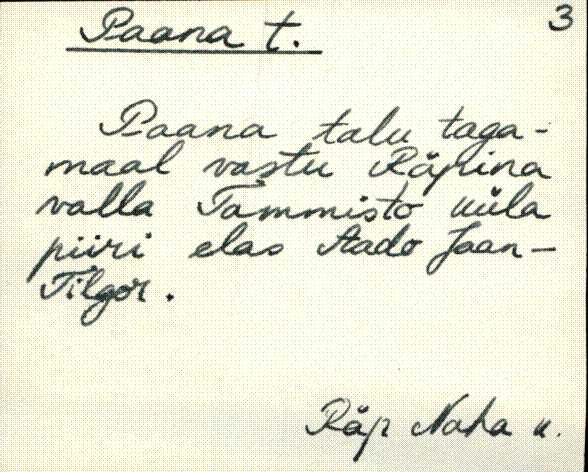 Paana t. 3
Paana talu taga-
maal vastu Räpina
valla Tammisto küla
piiri elas Aado Jaan-
Tilgor.
Räp Naha k.